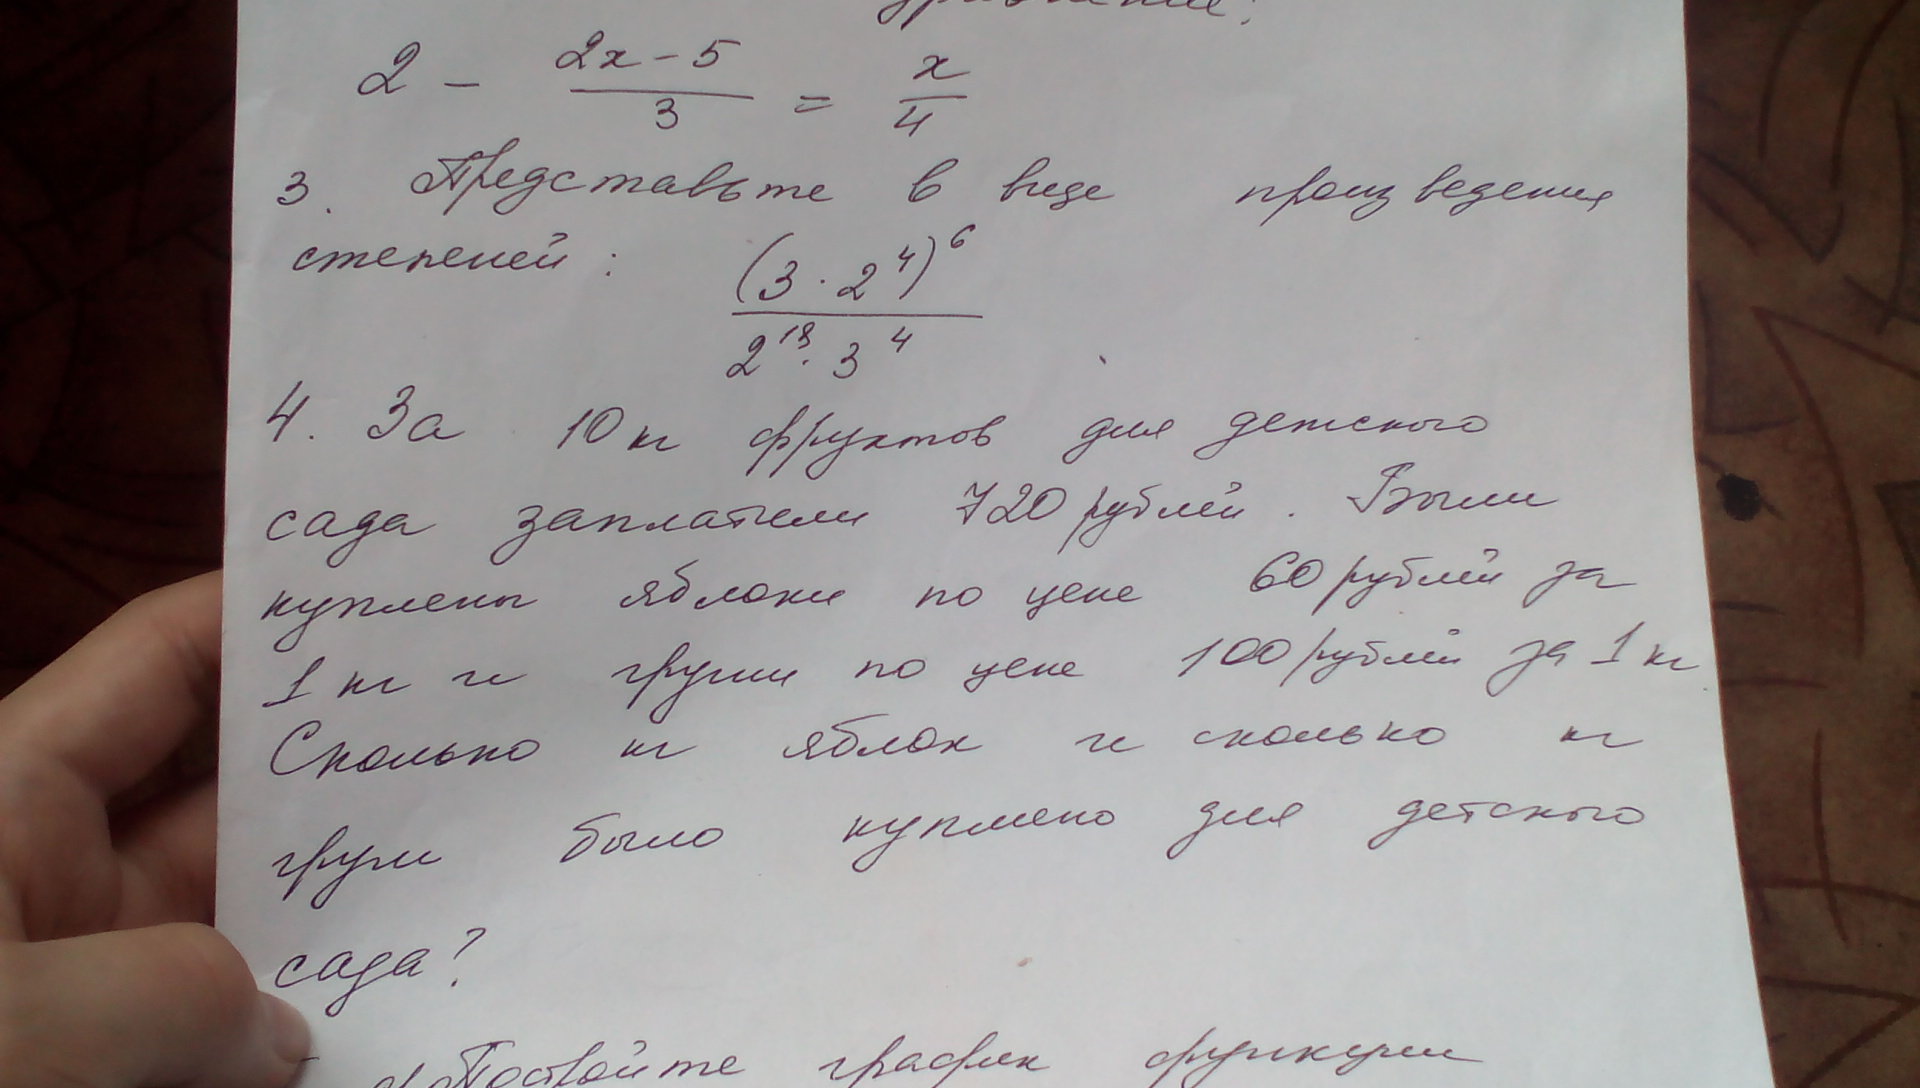 уравнение:
2 - (2x - 5)/3 = x/4
3. Представьте в виде произведения
степеней: (3 · 2^4)^6 / (2^13 · 3^4)
4. За 10 кг фруктов для детского
сада заплатили 720 рублей. Были
куплены яблоки по цене 60 рублей за
1 кг и груши по цене 100 рублей за 1 кг
Сколько кг яблок и сколько кг
груш было куплено для детского
сада?
Постройте график функции